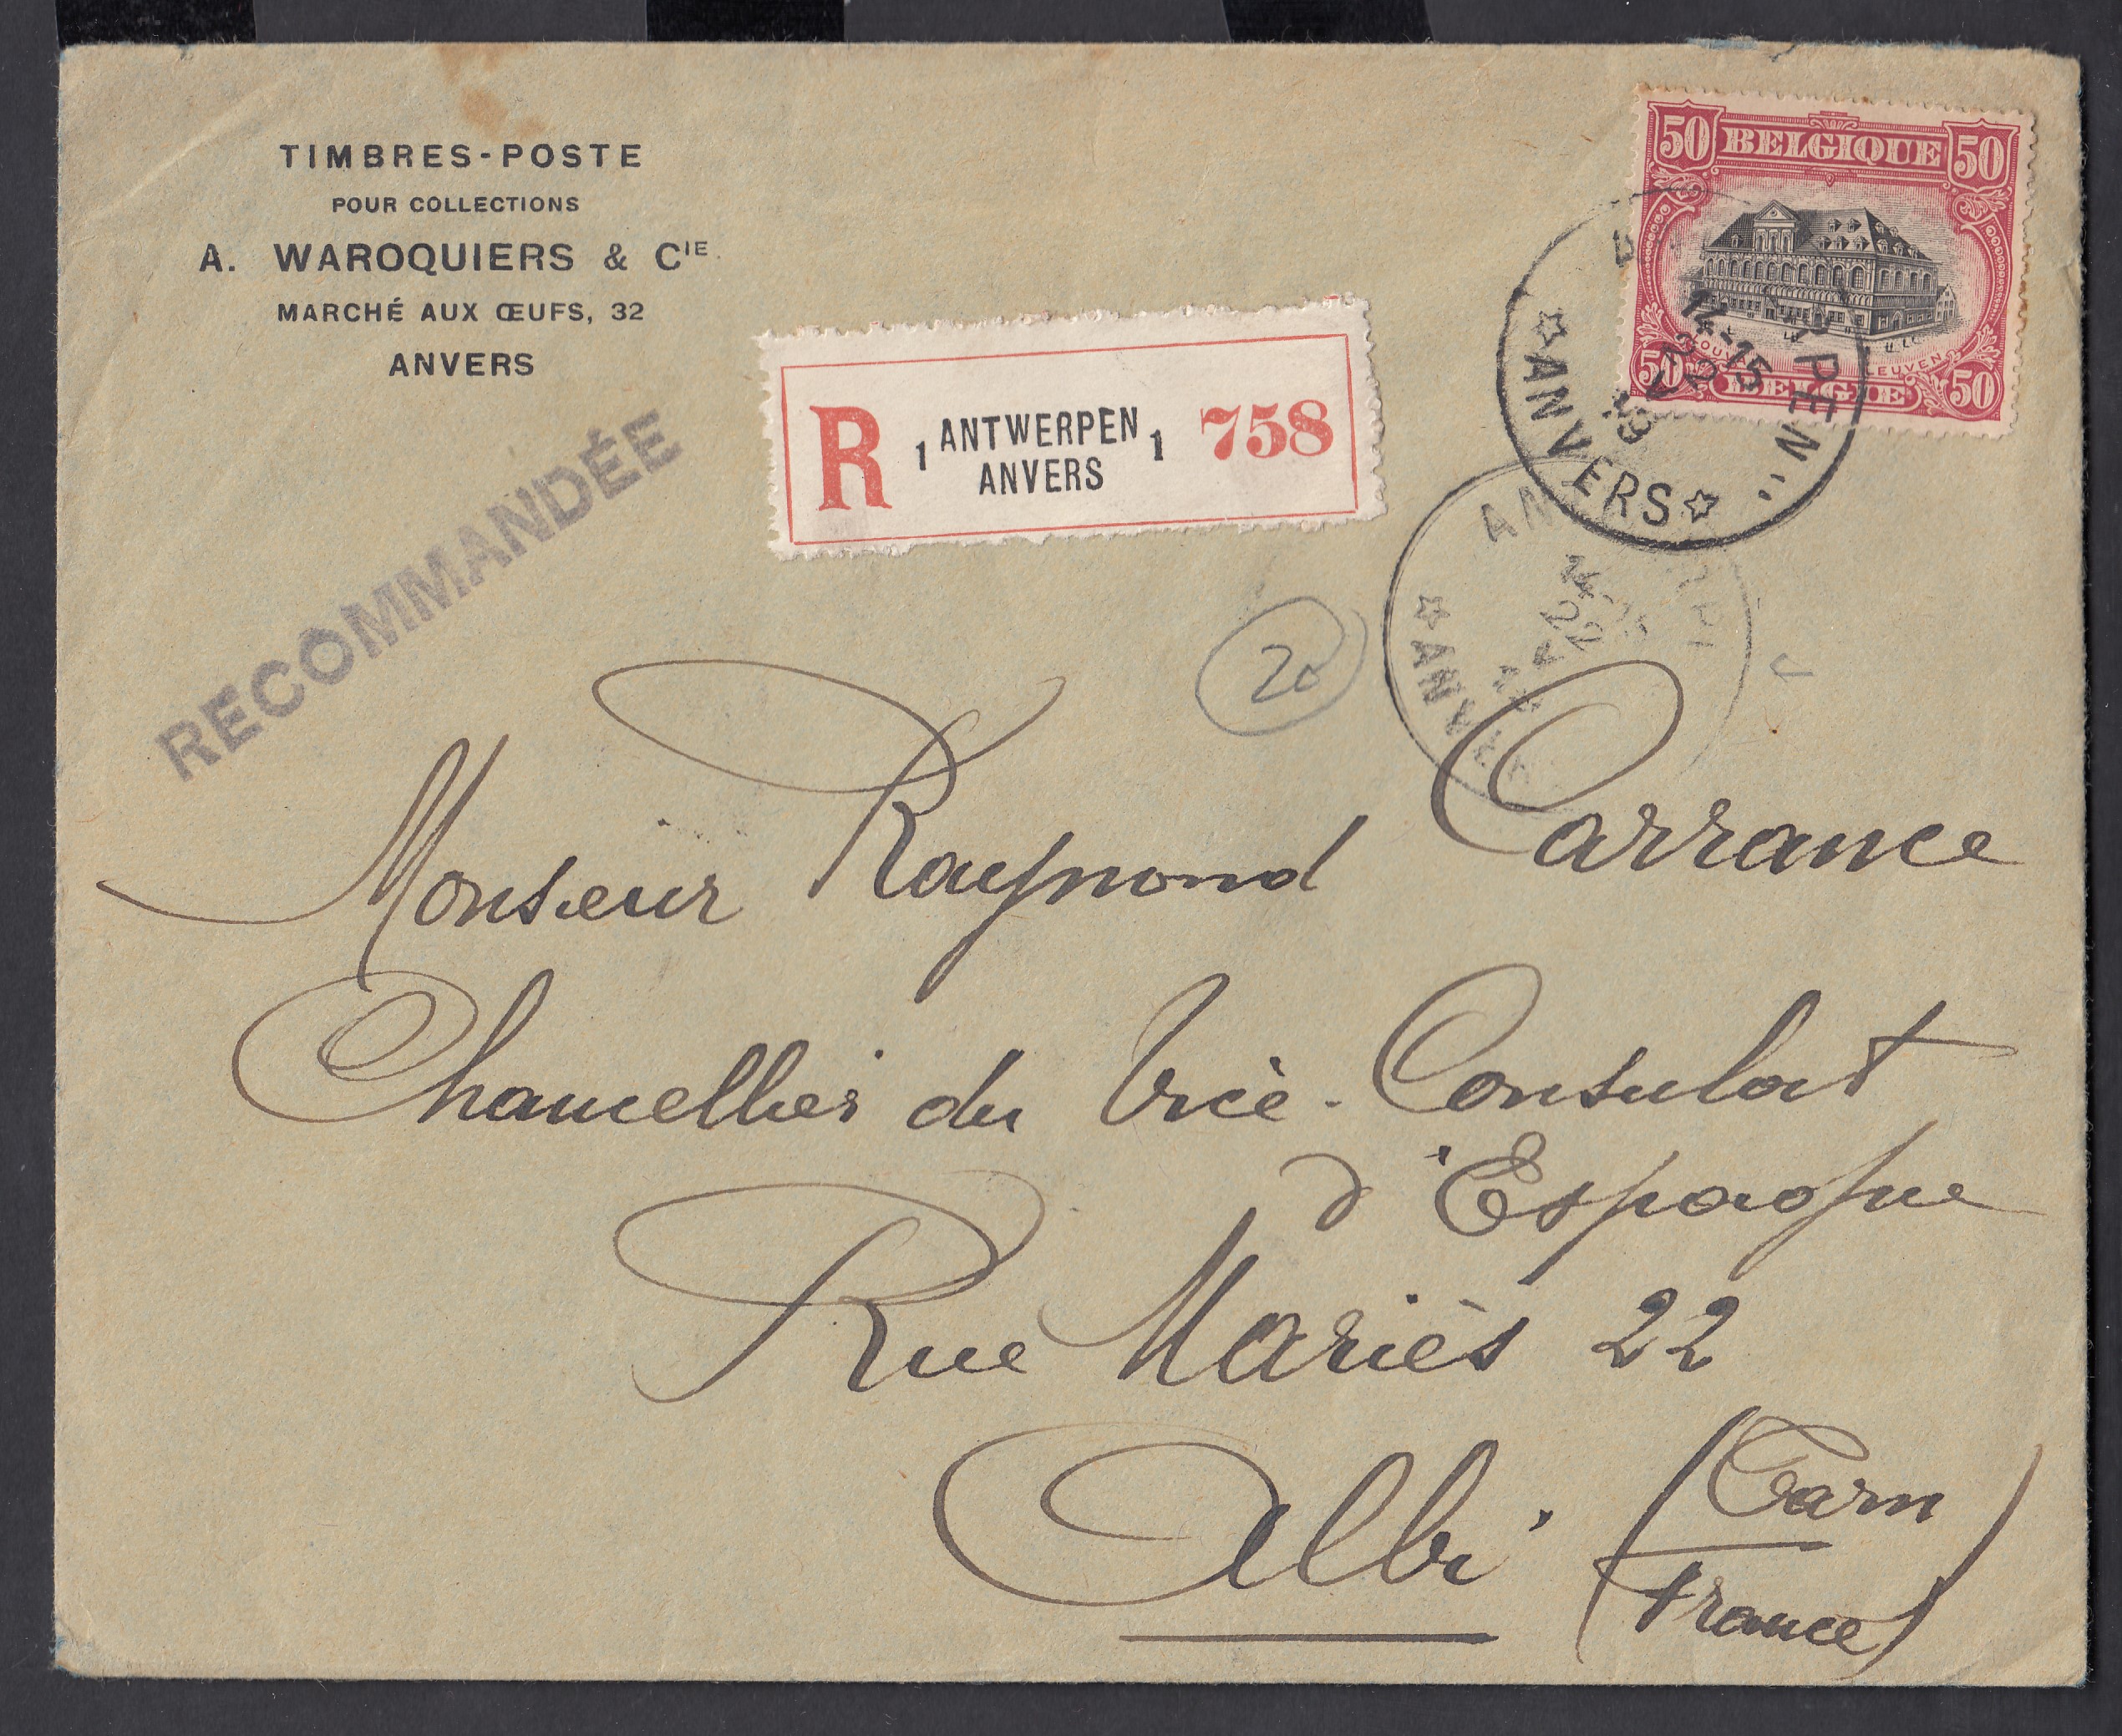 TIMBRES-POSTE
POUR COLLECTIONS
A. WAROQUIERS & CIE.
MARCHÉ AUX ŒUFS, 32
ANVERS
RECOMMANDÉE
R 1 ANTWERPEN 1 758
ANVERS
50 BELGIQUE 50
LEUVEN
50 BELGIE 50
PEN
14-15
22 V
19
☆ANVERS☆
AN
22
☆ANVER
20
Monsieur Raymond Carrance
Chancellier du Vice-Consulat
d'Espagne
Rue Mariès 22
Albi (Tarn
France)